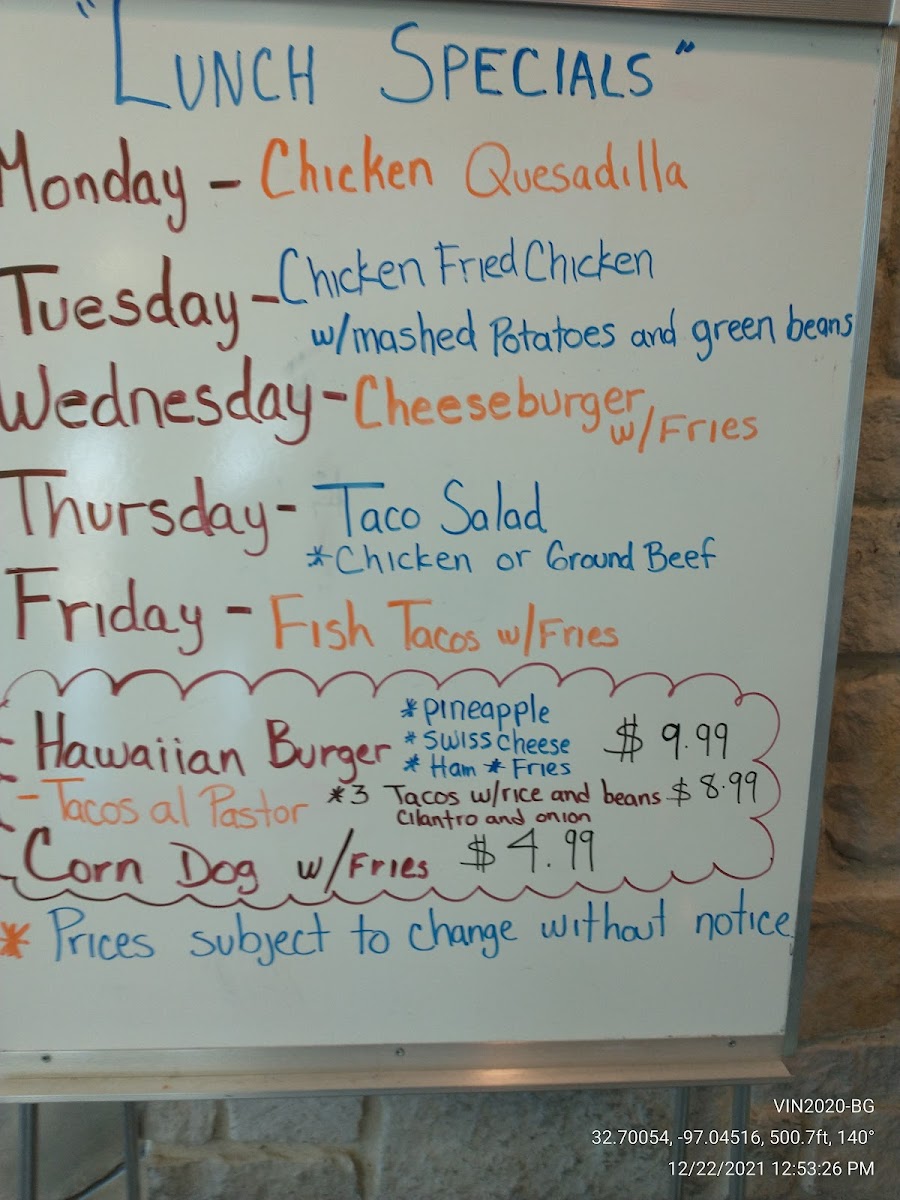 "Lunch Specials"
Monday - Chicken Quesadilla
Tuesday - Chicken Fried Chicken
w/mashed Potatoes and green beans
Wednesday - Cheeseburger
w/Fries
Thursday - Taco Salad
*Chicken or Ground Beef
Friday - Fish Tacos w/Fries
- Hawaiian Burger *pineapple *Swiss cheese *Ham *Fries $9.99
- Tacos al Pastor *3 Tacos w/rice and beans $8.99
cilantro and onion
Corn Dog w/Fries $4.99
* Prices subject to change without notice
VIN2020-BG
32.70054, -97.04516, 500.7ft, 140°
12/22/2021 12:53:26 PM